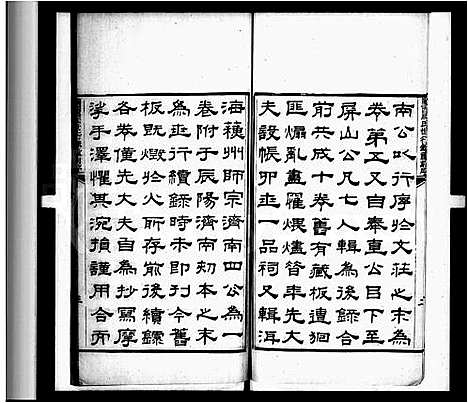 南公以行序於文莊之末為
卷第五又自奉直公目下至
屏山公凡七人輯為後錄合
前共成十卷舊有藏板遭徊
匪煽亂盡罹煨燼昝年先大
夫設帳卯𠀍一品祠又輯洱
海賴州師宗濟南四公為一
卷附于辰陽濟南初本之末
為𠀍行續錄時未即刊今舊
板既燬於火所存前後續錄
各卷僅先大夫自為抄寫摩
挲手澤懼其沉損謹用合而